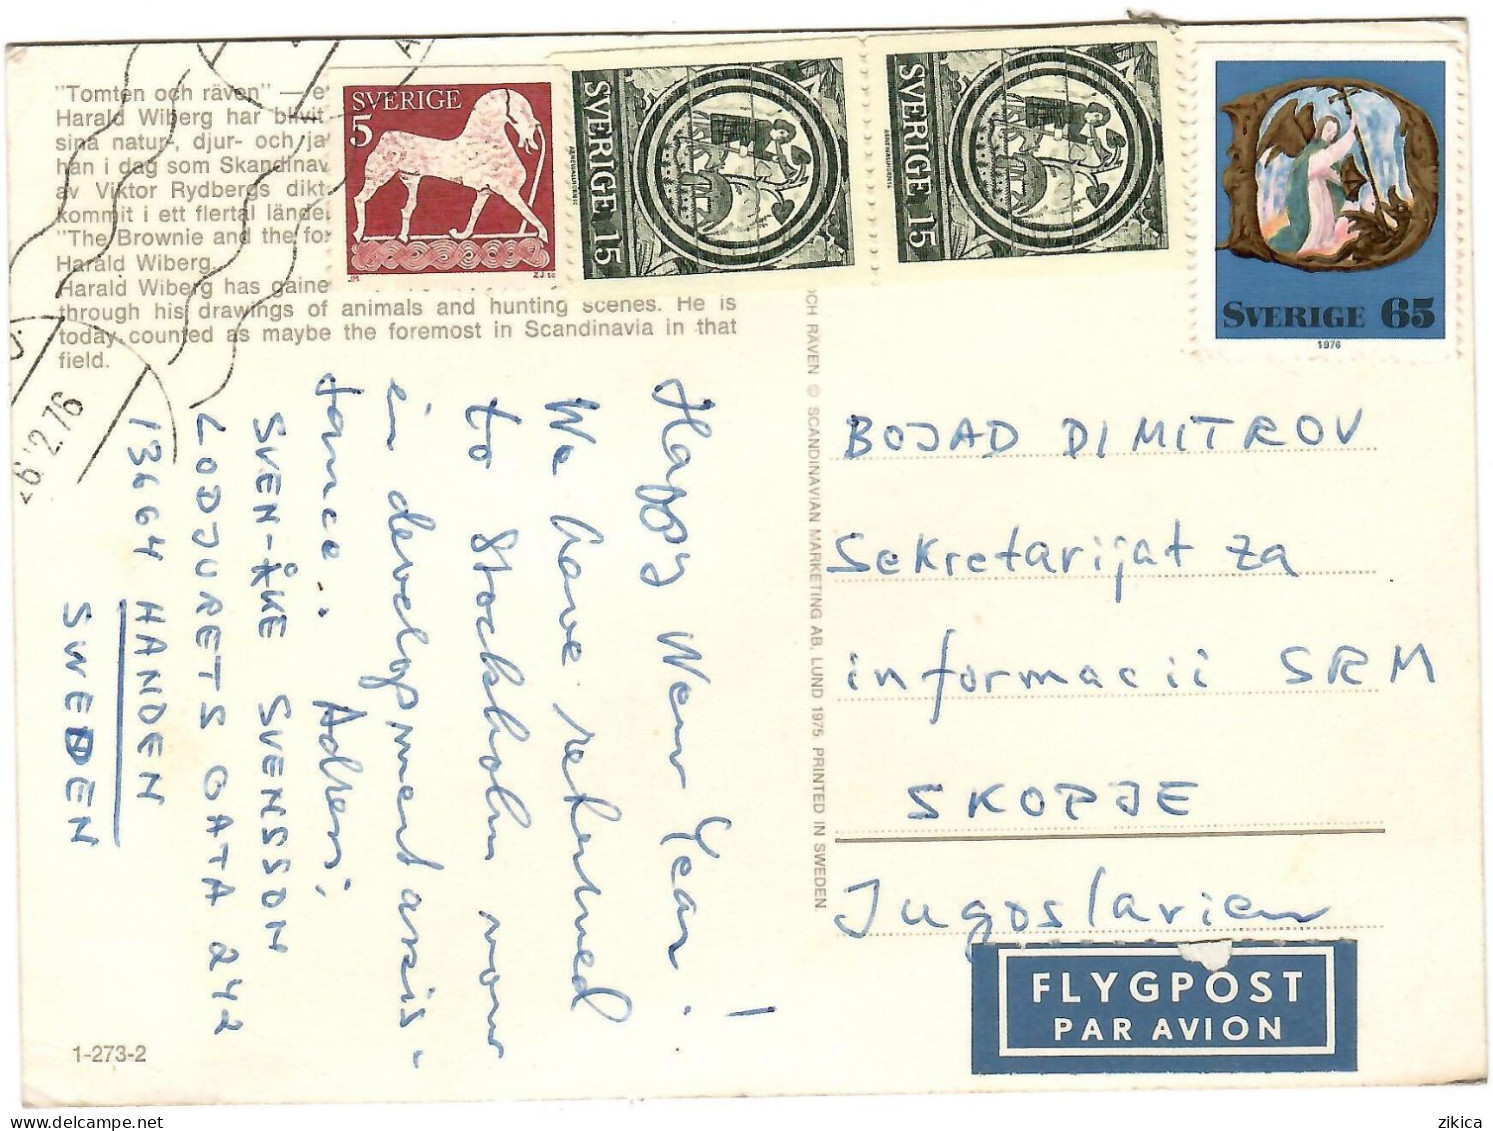 "Tomten och räven" — e
Harald Wiberg har blivit
sina natur-, djur- och ja
han i dag som Skandinav
av Viktor Rydbergs dikt
kommit i ett flertal lände
"The Brownie and the fo
Harald Wiberg.
Harald Wiberg has gaine
through his drawings of animals and hunting scenes. He is
today counted as maybe the foremost in Scandinavia in that
field.
SVERIGE
5
JM
ZJ sc
SVERIGE 15
SVERIGE 15
SVERIGE 65
1976
26.2.76
Happy New Year!
We have returned
to Stockholm now
in development assis-
tance.. Adress:
SVEN-ÅKE SVENSSON
LODJURETS GATA 242
13664 HANDEN
SWEDEN
OCH RÄVEN © SCANDINAVIAN MARKETING AB, LUND 1975. PRINTED IN SWEDEN.
BOJAD DIMITROV
Sekretarijat za
informacii SRM
SKOPJE
Jugoslavien
FLYGPOST
PAR AVION
1-273-2
zikica